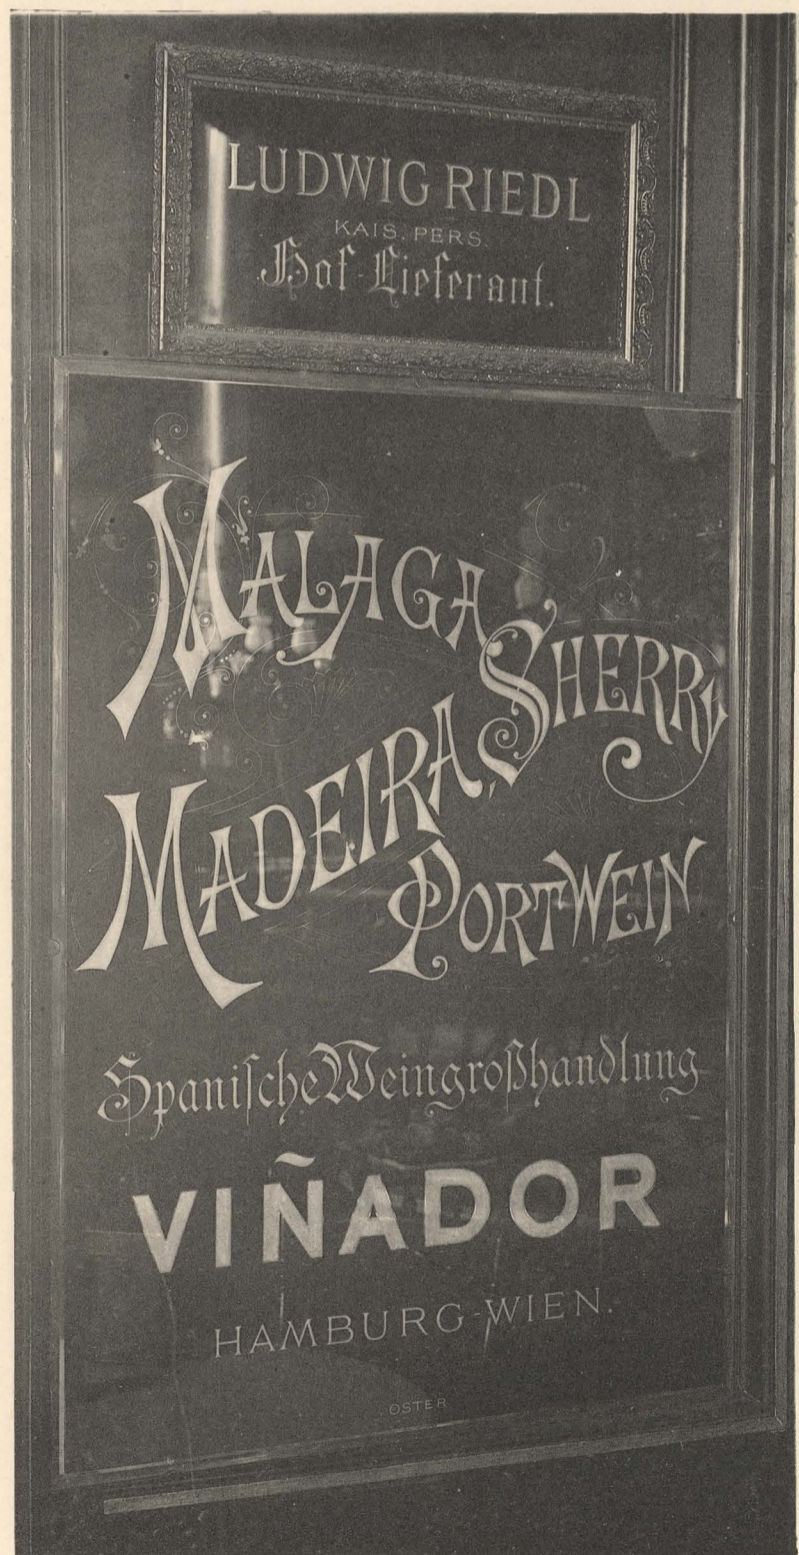 LUDWIG RIEDL
KAIS. PERS.
Hof-Lieferant.
MALAGA
SHERRY
MADEIRA,
PORTWEIN
Spaniſche Weingroßhandlung
VIÑADOR
HAMBURG-WIEN.
OSTER